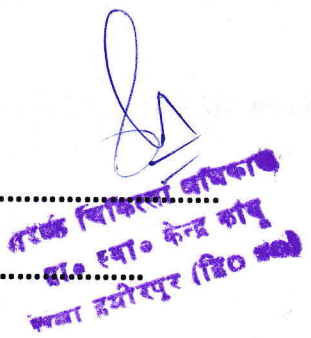 खण्ड चिकित्सा अधिकारी
प्रा० स्वा० केन्द्र कांगू
जिला हमीरपुर (हि० प्र०)